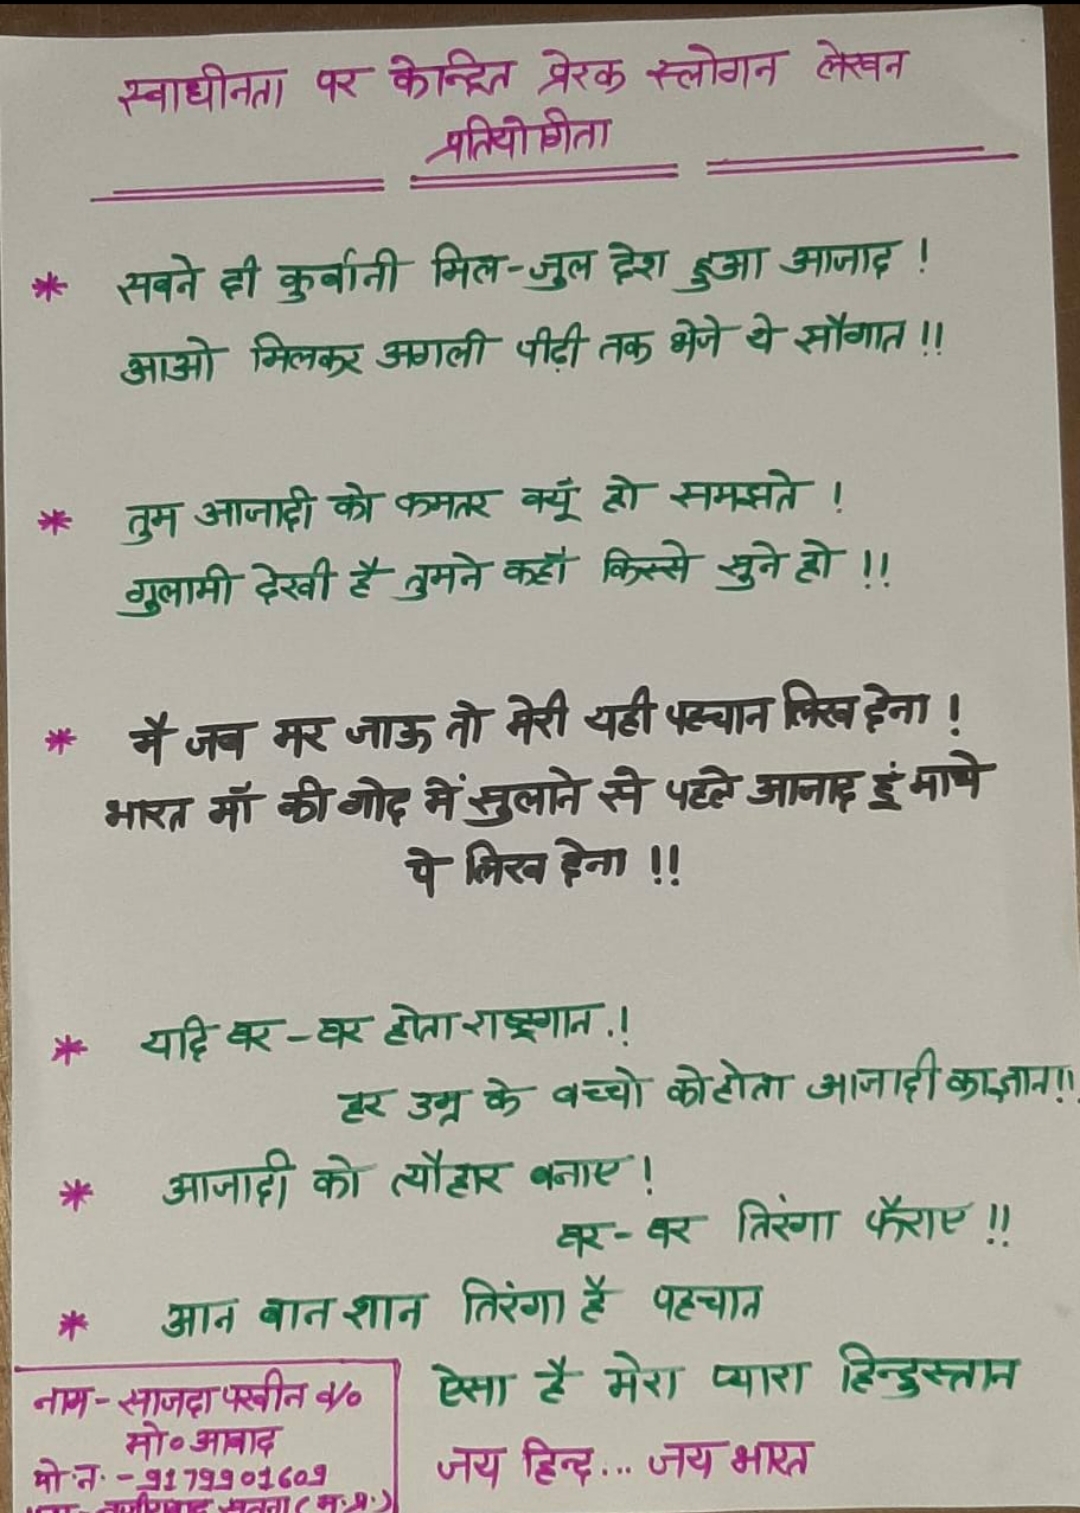 स्वाधीनता पर केन्द्रित प्रेरक स्लोगन लेखन
प्रतियोगिता
* सबने दी कुर्बानी मिल-जुल देश हुआ आजाद !
आओ मिलकर अगली पीढ़ी तक भेजे ये सौगात !!
* तुम आजादी को कमतर क्यूँ हो समझते !
गुलामी देखी है तुमने कहाँ किस्से सुने हो !!
* मै जब मर जाऊ तो मेरी यही पहचान लिख देना !
भारत माँ की गोद में सुलाने से पहले आजाद हूं माथे
पे लिख देना !!
* यदि घर-घर होता राष्ट्रगान.!
हर उम्र के बच्चो को होता आजादी का ज्ञान!!
* आजादी को त्यौहार बनाए !
घर-घर तिरंगा फैराए !!
* आन बान शान तिरंगा है पहचान
ऐसा है मेरा प्यारा हिन्दुस्तान
जय हिन्द... जय भारत
नाम - साजदा परवीन w/o
मो० आबाद
मो.न. - 9179901609
सतना (म.प्र.)